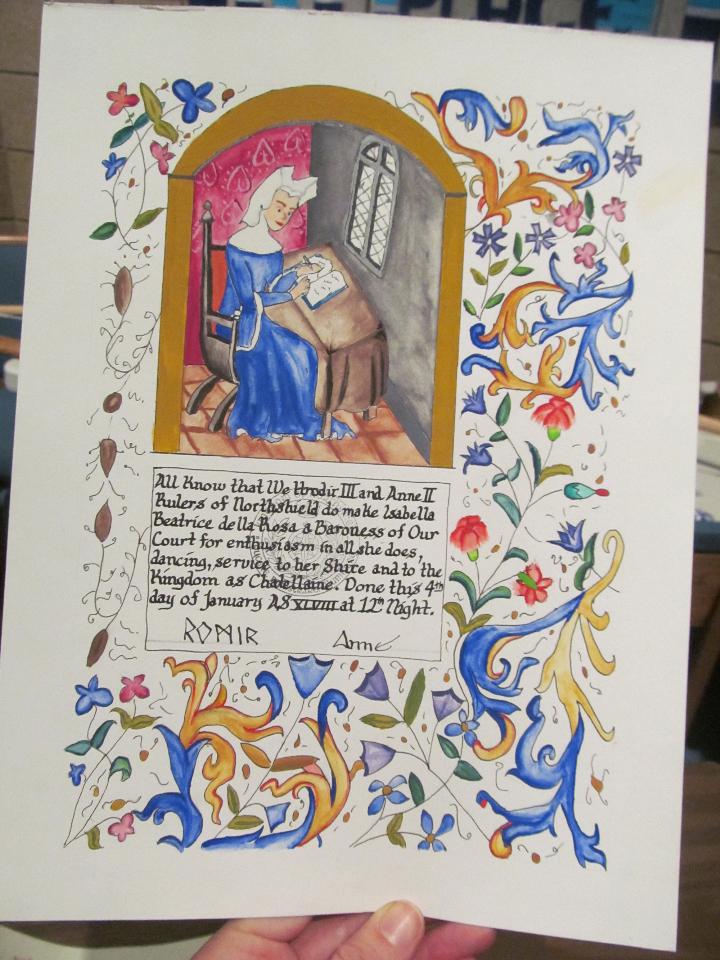 PLACE
All Know that We Hrodir III and Anne II
Rulers of Northshield do make Isabella
Beatrice della Rosa a Baroness of Our
Court for enthusiasm in all she does,
dancing, service to her Shire and to the
Kingdom as Chatellaine. Done this 4th
day of January AS XLVIII at 12th Night.
Anne